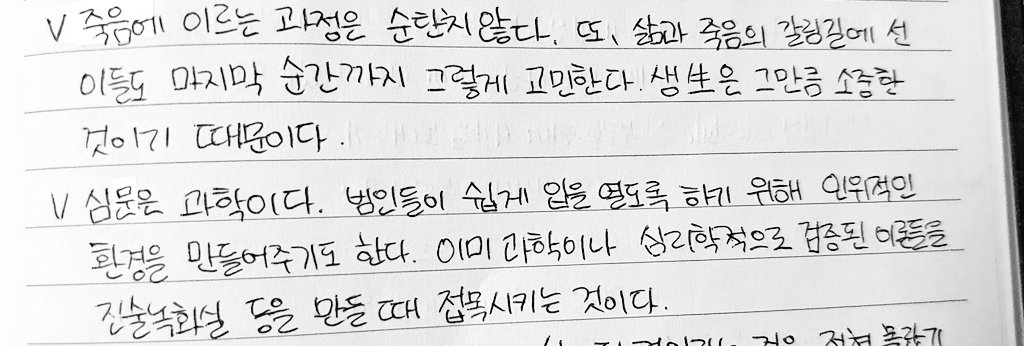 V 죽음에 이르는 과정은 순탄치 않다. 또, 삶과 죽음의 갈림길에 선
이들도 마지막 순간까지 그렇게 고민한다. 생生은 그만큼 소중한
것이기 때문이다.
V 심문은 과학이다. 범인들이 쉽게 입을 열도록 하기 위해 인위적인
환경을 만들어주기도 한다. 이미 과학이나 심리학적으로 검증된 이론들을
진술녹화실 등을 만들 때 접목시키는 것이다.
것은 전혀 몰랐기